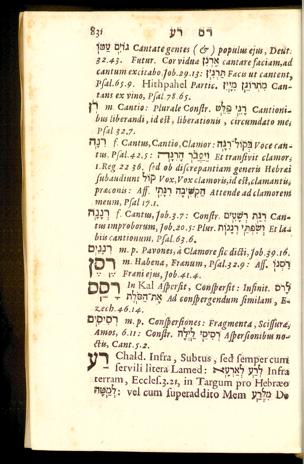 831 רס רע
גוֹיִם עַמּוֹ Cantate gentes (&) populus ejus, Deut.
32.43. Futur. Cor viduæ אַרְנִן cantare faciam, ad
cantum excitabo. Job. 29.13: תַּרְנִין Facis ut cantent,
Psal. 65.9. Hithpahel Partic. מִתְרוֹנֵן מִיָּיִן Can-
tans ex vino, Psal. 78.65.
רֹן m. Cantio: Plurale Constr. רָנֵּי פַלֵּט Cantioni-
bus liberandi, id est, liberationis, circumdato me,
Psal. 32.7.
רִנָּה f. Cantus, Cantio, Clamor: בְּקוֹל־רִנָּה Voce can-
tus, Psal. 42.5: וַיַּעֲבֹר הָרִנָּה Et transivit clamor,
1. Reg 22 36. sed ob discrepantiam generis Hebræi
subaudiunt קוֹל Vox. Vox clamoris, id est, clamantis,
præconis: Aff. הַקְשִׁיבָה רִנָּתִי Attende ad clamorem
meum, Psal. 17.1.
רְנָנָה f. Cantus, Job. 3.7: Constr. רִנְנַת רְשָׁעִים Can-
tus improborum, Job. 20.5: Plur. וְשִׂפְתֵי רְנָנוֹת Et la-
biis cantionum, Psal. 63.6.
רְנָנִים m. p. Pavones, à Clamore sic dicti, Job. 39.16.
רֶסֶן m. Habena, Frænum, Psal. 32.9: Aff. רִסְנוֹ
Fræni ejus, Job. 41.4.
רָסַס In Kal Aspersit, Conspersit: Infinit. לָרֹס
אֶת־הַסֹּלֶת Ad conspergendum similam, E-
zech. 46.14.
רְסִיסִים m. p. Conspersiones: Fragmenta, Scissuræ,
Amos, 6.11: Constr. רְסִיסֵי לָיְלָה Aspersionibus no-
ctis, Cant. 5.2.
רַע Chald. Infra, Subtus, sed semper cum
servili litera Lamed: לְרַע לְאַרְעָא Infra
terram, Eccles. 3.21, in Targum pro Hebræo
לְמַטָּה: vel cum superaddito Mem מִלְּרַע De